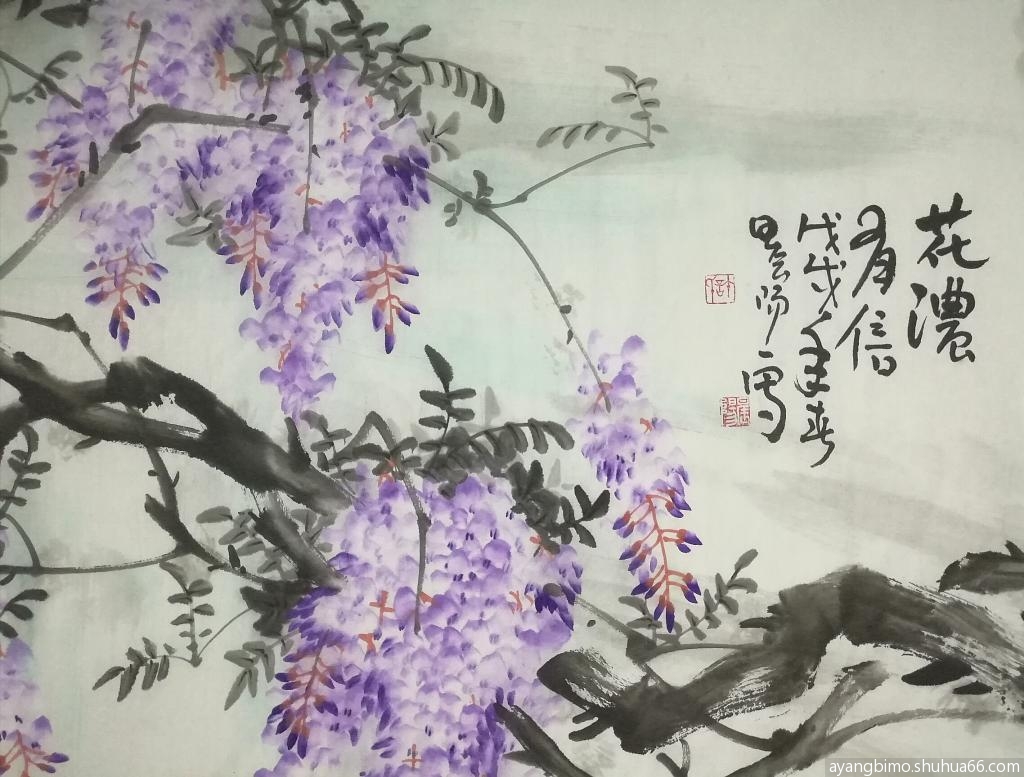 花濃
有信
戊戌年春
昱陽寫
ayangbimo.shuhua66.com